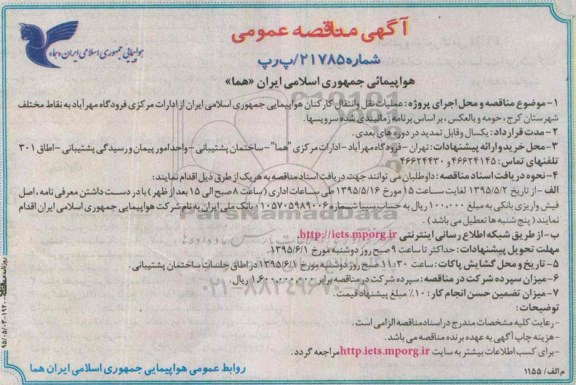 آگهی مناقصه عمومی
شماره ۲۱۷۸۵/پ‌رپ
هواپیمائی جمهوری اسلامی ایران «هما»
هواپیمایی جمهوری اسلامی ایران «هما»
۱- موضوع مناقصه و محل اجرای پروژه: عملیات نقل و انتقال کارکنان هواپیمایی جمهوری اسلامی ایران از ادارات مرکزی فرودگاه مهرآباد به نقاط مختلف
شهرستان کرج، حومه و بالعکس، بر اساس برنامه زمانبندی شده سرویسها.
۲- مدت قرارداد: یکسال وقابل تمدید در دوره های بعدی.
۳- محل خرید و ارائه پیشنهادات: تهران - فرودگاه مهرآباد - ادارات مرکزی "هما" - ساختمان پشتیبانی - واحد امور پیمان و رسیدگی پشتیبانی - اطاق ۳۰۱
تلفنهای تماس: ۴۶۶۲۴۱۴۵ و ۴۶۶۲۴۴۳۰
۴- نحوه دریافت اسناد مناقصه: داوطلبان می توانند جهت دریافت اسناد مناقصه به هریک از طرق ذیل اقدام نمایند:
الف - از تاریخ ۱۳۹۵/۵/۲ لغایت ساعت ۱۵ مورخ ۱۳۹۵/۵/۱۶ طی ساعات اداری (ساعت ۸ صبح الی ۱۵ بعد از ظهر) با در دست داشتن معرفی نامه، اصل
فیش واریزی بانکی به مبلغ ۱۰۰،۰۰۰ ریال به حساب سیبا شماره ۰۱۰۵۷۰۵۹۸۹۰۰۶ بانک ملی ایران به نام شرکت هواپیمایی جمهوری اسلامی ایران اقدام
نمایند (پنج شنبه ها تعطیل می باشد)
ب- از طریق شبکه اطلاع رسانی اینترنتی http://iets.mporg.ir.
مهلت تحویل پیشنهادات: حداکثر تا ساعت ۹ صبح روز دوشنبه مورخ ۱۳۹۵/۶/۱.
۵- تاریخ و محل گشایش پاکات: ساعت ۱۱:۳۰ صبح روز دوشنبه مورخ ۱۳۹۵/۶/۱ در اطاق جلسات ساختمان پشتیبانی.
۶- میزان سپرده شرکت در مناقصه: سپرده شرکت در مناقصه برابر ریال.
۷- میزان تضمین حسن انجام کار: ۱۰٪ مبلغ پیشنهاد قیمت.
توضیحات:
- رعایت کلیه مشخصات مندرج در اسناد مناقصه الزامی است.
- هزینه چاپ آگهی به عهده برنده مناقصه می باشد.
- برای کسب اطلاعات بیشتر به سایت http://iets.mporg.ir مراجعه گردد.
روابط عمومی هواپیمایی جمهوری اسلامی ایران هما
م الف/ ۱۱۵۵
ParsNamadData
۰۲۱-۸۸۳۴۹۶۷۰